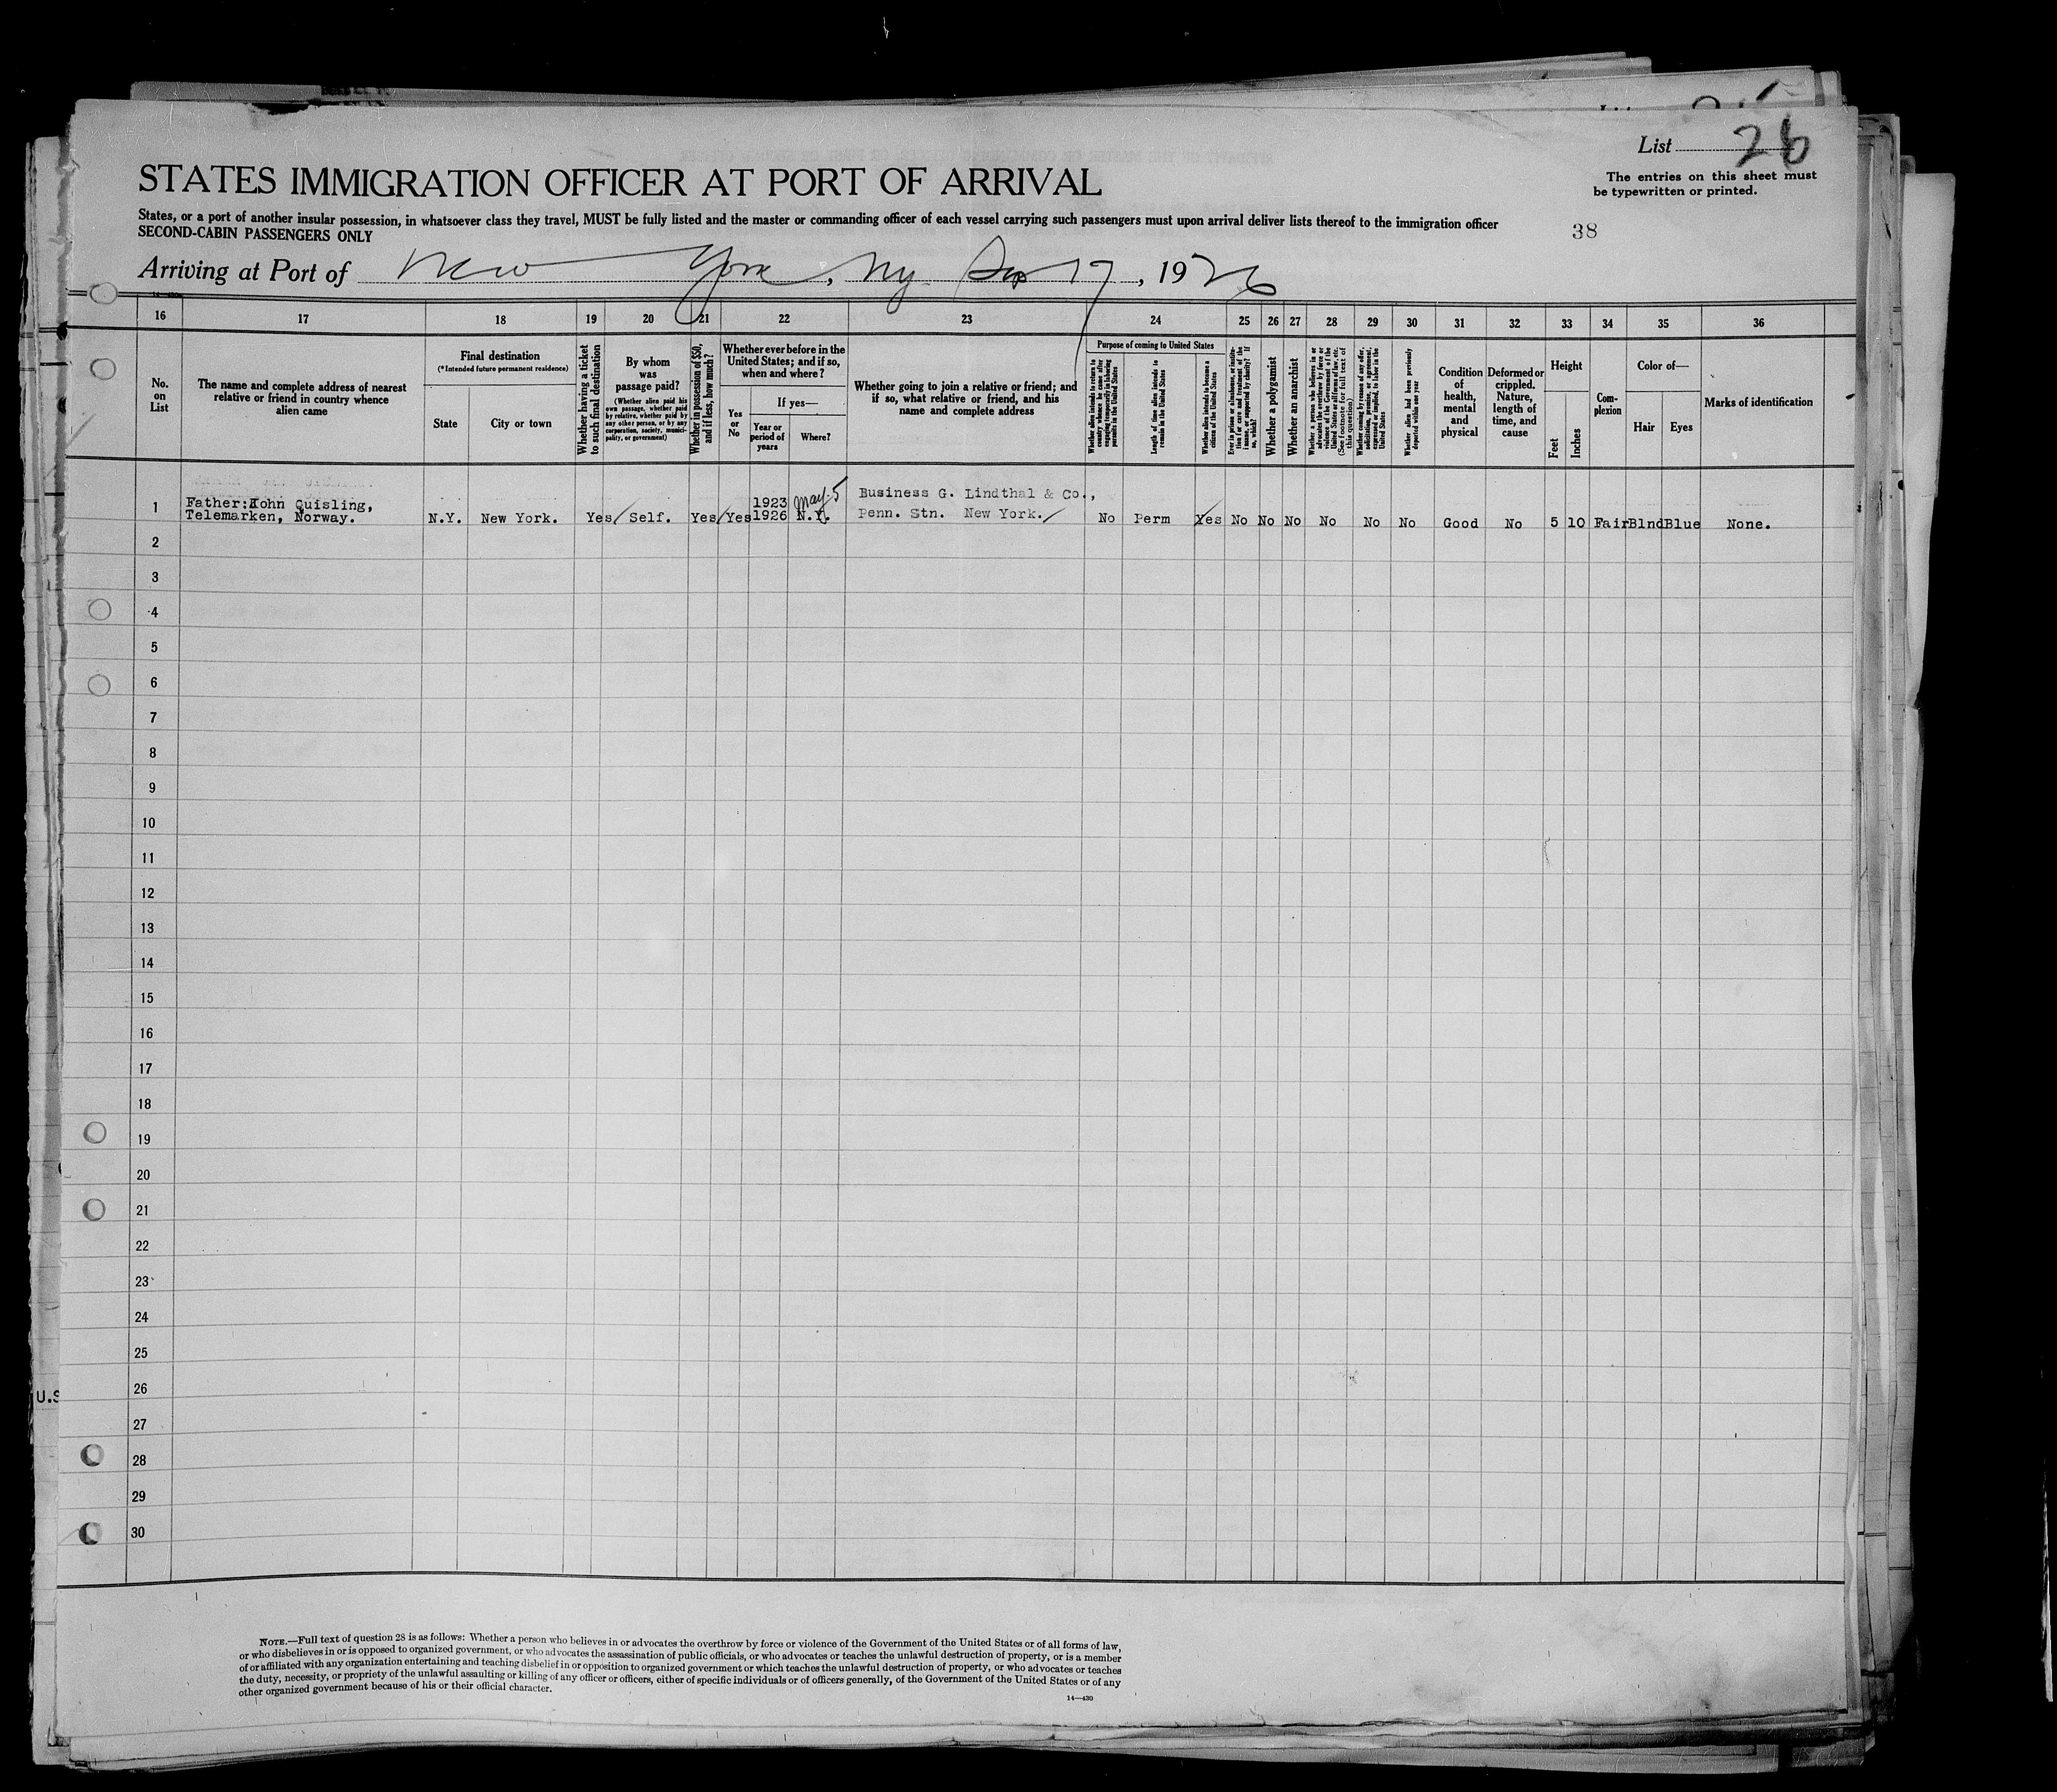 List 26
The entries on this sheet must
be typewritten or printed.
STATES IMMIGRATION OFFICER AT PORT OF ARRIVAL
States, or a port of another insular possession, in whatsoever class they travel, MUST be fully listed and the master or commanding officer of each vessel carrying such passengers must upon arrival deliver lists thereof to the immigration officer
SECOND-CABIN PASSENGERS ONLY
38
Arriving at Port of New York, Ny. 17, 1926
16 17 18 19 20 21 22 23 24 25 26 27 28 29 30 31 32 33 34 35 36
No.
on
List
The name and complete address of nearest
relative or friend in country whence
alien came
Final destination
(*Intended future permanent residence)
State
City or town
Whether having a ticket
to such final destination
By whom
was
passage paid?
(Whether alien paid his
own passage, whether paid
by relative, whether paid by
any other person, or by any
corporation, society, munici-
pality, or government)
Whether in possession of $50,
and if less, how much?
Whether ever before in the
United States; and if so,
when and where?
Yes
or
No
If yes—
Year or
period of
years
Where?
Whether going to join a relative or friend; and
if so, what relative or friend, and his
name and complete address
Purpose of coming to United States
Whether alien intends to return to
country whence he came after
engaging temporarily in laboring
pursuits in the United States
Length of time alien intends to
remain in the United States
Whether alien intends to become a
citizen of the United States
Ever in prison or almshouse, or institu-
tion for care and treatment of the
insane, or supported by charity? If
so, which?
Whether a polygamist
Whether an anarchist
Whether a person who believes in or
advocates the overthrow by force or
violence of the Government of the
United States or all forms of law, etc.
(See footnote for full text of
this question)
Whether coming by reason of any offer,
solicitation, promise, or agreement,
expressed or implied, to labor in the
United States
Whether alien had been previously
deported within one year
Condition
of
health,
mental
and
physical
Deformed or
crippled.
Nature,
length of
time, and
cause
Height
Feet
Inches
Com-
plexion
Color of—
Hair
Eyes
Marks of identification
1 Father: John Quisling,
Telemarken, Norway. N.Y. New York. Yes Self. Yes Yes 1923
1926 May 5
N.Y. Business G. Lindthal & Co.,
Penn. Stn. New York. No Perm Yes No No No No No No Good No 5 10 Fair Blnd Blue None.
2
3
4
5
6
7
8
9
10
11
12
13
14
15
16
17
18
19
20
21
22
23
24
25
26
27
28
29
30
U.S
NOTE.—Full text of question 28 is as follows: Whether a person who believes in or advocates the overthrow by force or violence of the Government of the United States or of all forms of law,
or who disbelieves in or is opposed to organized government, or who advocates the assassination of public officials, or who advocates or teaches the unlawful destruction of property, or is a member
of or affiliated with any organization entertaining and teaching disbelief in or opposition to organized government or which teaches the unlawful destruction of property, or who advocates or teaches
the duty, necessity, or propriety of the unlawful assaulting or killing of any officer or officers, either of specific individuals or of officers generally, of the Government of the United States or of any
other organized government because of his or their official character.
14—430